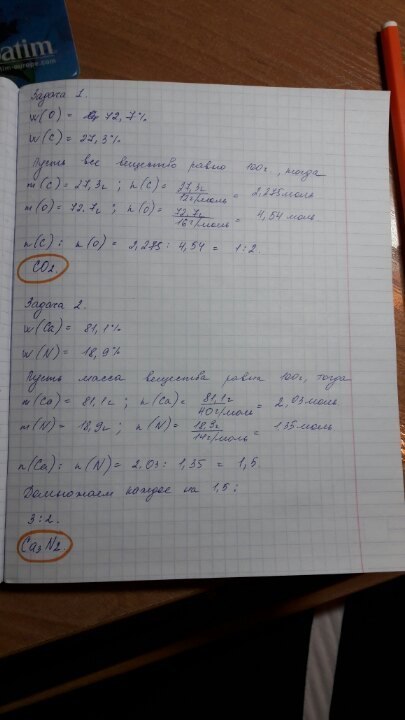 batim
-europe.com
Задача 1.
w(O) = 72,7%
w(C) = 27,3%
Пусть все вещество равно 100г, тогда
m(C) = 27,3г ; n(C) = 27,3г / 12г/моль = 2,275моль
m(O) = 72,7г ; n(O) = 72,7г / 16г/моль = 4,54 моль
n(C) : n(O) = 2,275 : 4,54 = 1:2.
CO2.
Задача 2.
w(Ca) = 81,1%
w(N) = 18,9%
Пусть масса вещества равна 100г, тогда
m(Ca) = 81,1г ; n(Ca) = 81,1г / 40г/моль = 2,03моль
m(N) = 18,9г ; n(N) = 18,9г / 14г/моль = 135моль
n(Ca) : n(N) = 2,03 : 1,35 = 1,5.
Домножаем каждое на 1,5 :
3:2.
Ca3N2.